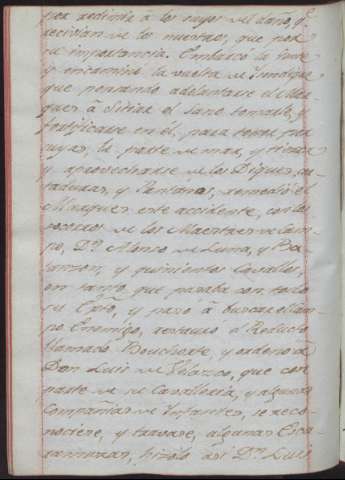 por redimir à los suyos del daño, q.e
recivian de los nuestros, que por
su importancia. Embarcó la gente
y encaminó la vuelta de
que pensando adelantarse el Mar-
ques à sitiar el Sano tomarle, y
fortificarse en él, para tener por
suyas, la parte de mar, y tierra
y aprovecharse de los Diques, cor-
taduras, y Pantanos, remedió el
Marques este accidente, con los
socorros de los Maestres de Cam-
po, D.n Alonso de Luna, y
y quinientos Cavallos,
en tanto que pasaba con todo
su Exto, y pasó à buscar el Cam-
po Enemigo, restauró el Reducto
llamado Bouchorte, y ordenó à
Don Luis de Velazco, que con
parte de su Cavalleria, y algunas
Compañias de Infantes, le reco-
nociese, y travase, algunas Esca-
ramuzas, hizolo asi D.n Luis